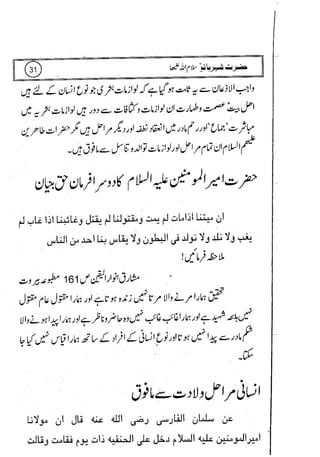 31
حضرت شہربانو سلام اللہ علیہا
واجب الاذعان سے یہ ثابت ہو گیا ہے کہ لوازمات بشری جو نوع انسان کے لئے ہیں
اہل بیت عصمت و طہارت ان لوازمات و کثافات سے دور ہیں لوازمات بشریہ میں
مباشرت، جماع، اور رحم مادر میں انعقاد نطفہ اور دیگر مراحل ہیں مگر حضرات طاہرین
علیہم السلام ان تمام مراحل اور لوازمات توالد و تناسل سے مافوق ہیں۔
حضرت امیر المومنین علیہ السلام کا دوسرا فرمان حق بیان
ان میتنا اذامات لم یمت ومقتولنا لم یقتل وغائبنا اذا غاب لم
یغب ولا نلد ولا نولد فی البطون ولا یقاس بنا احد من الناس
ملاحظہ فرمائیں!
مشارق انوار الیقین ص 161 مطبوعہ بیروت
تحقیق ہمارا مرنے والا مرتا نہیں زندہ ہوتا ہے اور ہمارا مقتول عام مقتول
نہیں بلکہ شہید ہے اور ہمارا غائب غائب نہیں وہ حاضر و ناظر ہے اور ہمارا پیدا ہونے والا
شکم مادر سے پیدا نہیں ہوتا اور نوع انسانی کے افراد کے ساتھ ہمارا قیاس نہیں کیا جا
سکتا۔
انسانی مراحل ولادت سے مافوق
عن سلمان الفارسی رضی الله عنه قال ان مولانا
امیرالمومنین علیه السلام دخل علی الحنفیه ذات یوم فقامت وقالت